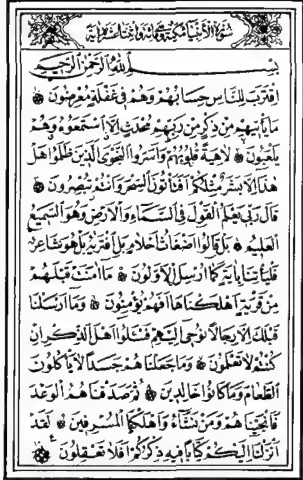 سُورَةُ الْأَنْبِيَاءِ مَكِّيَّةٌ
بِسْمِ اللهِ الرَّحْمٰنِ الرَّحِيمِ
اِقْتَرَبَ لِلنَّاسِ حِسَابُهُمْ وَهُمْ فِي غَفْلَةٍ مُعْرِضُونَ ۞
مَا يَأْتِيهِمْ مِنْ ذِكْرٍ مِنْ رَبِّهِمْ مُحْدَثٍ اِلَّا اسْتَمَعُوهُ وَهُمْ
يَلْعَبُونَ ۞ لَاهِيَةً قُلُوبُهُمْ وَاَسَرُّوا النَّجْوَى الَّذِينَ ظَلَمُوا هَلْ
هٰذَا اِلَّا بَشَرٌ مِثْلُكُمْ اَفَتَأْتُونَ السِّحْرَ وَاَنْتُمْ تُبْصِرُونَ ۞
قَالَ رَبِّي يَعْلَمُ الْقَوْلَ فِي السَّمَاءِ وَالْاَرْضِ وَهُوَ السَّمِيعُ
الْعَلِيمُ ۞ بَلْ قَالُوا اَضْغَاثُ اَحْلَامٍ بَلِ افْتَرٰيهُ بَلْ هُوَ شَاعِرٌ
فَلْيَأْتِنَا بِاٰيَةٍ كَمَا اُرْسِلَ الْاَوَّلُونَ ۞ مَا اٰمَنَتْ قَبْلَهُمْ
مِنْ قَرْيَةٍ اَهْلَكْنَاهَا اَفَهُمْ يُؤْمِنُونَ ۞ وَمَا اَرْسَلْنَا
قَبْلَكَ اِلَّا رِجَالًا نُوحِي اِلَيْهِمْ فَسْئَلُوا اَهْلَ الذِّكْرِ اِنْ
كُنْتُمْ لَا تَعْلَمُونَ ۞ وَمَا جَعَلْنَاهُمْ جَسَدًا لَا يَأْكُلُونَ
الطَّعَامَ وَمَا كَانُوا خَالِدِينَ ۞ ثُمَّ صَدَقْنَاهُمُ الْوَعْدَ
فَاَنْجَيْنَاهُمْ وَمَنْ نَشَاءُ وَاَهْلَكْنَا الْمُسْرِفِينَ ۞ لَقَدْ
اَنْزَلْنَا اِلَيْكُمْ كِتَابًا فِيهِ ذِكْرُكُمْ اَفَلَا تَعْقِلُونَ ۞